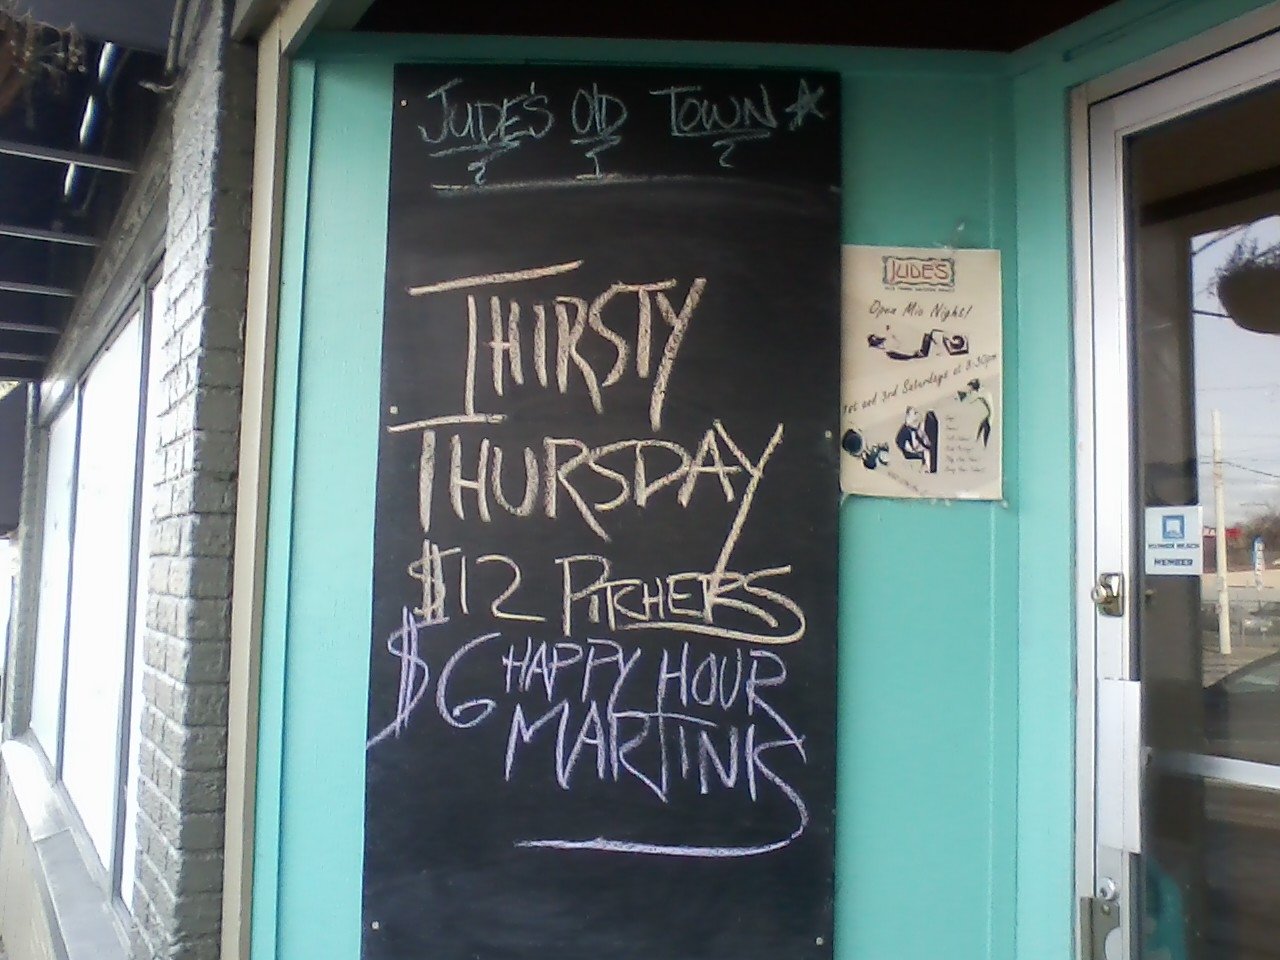 JUDE'S OLD TOWN
THIRSTY
THURSDAY
$12 PITCHERS
$6 HAPPY HOUR
MARTINIS
JUDE'S
Open Mic Night!
1st and 3rd Saturdays at 8:30pm
MEMBER